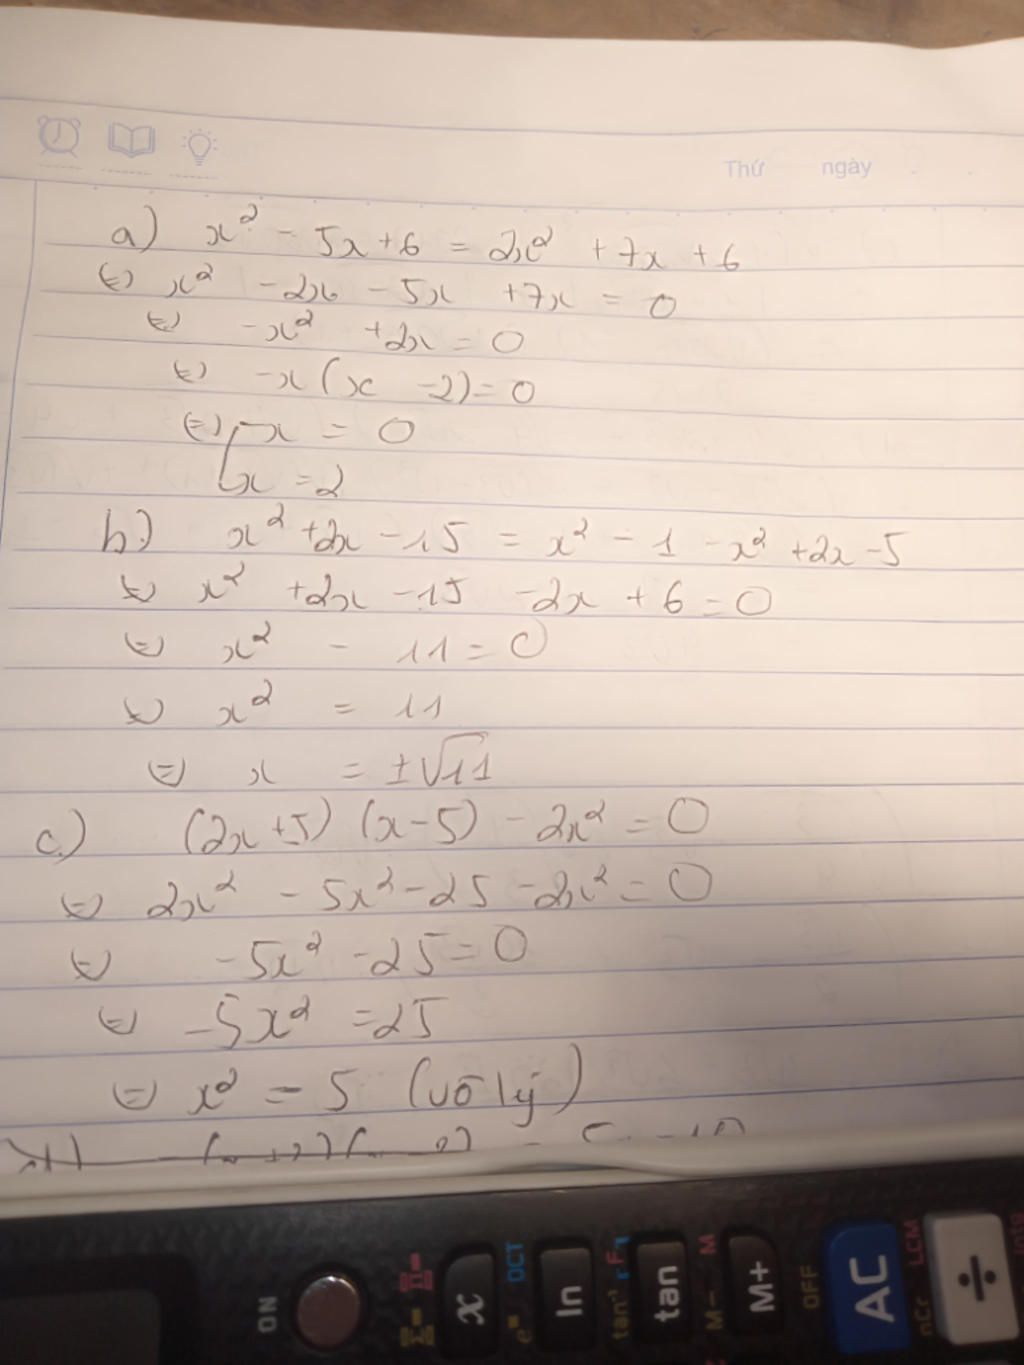 Thứ ngày
a) x² - 5x + 6 = 2x² + 7x + 6
⇔ x² - 2x - 5x + 7x = 0
⇔ -x² + 2x = 0
⇔ -x(x - 2) = 0
⇔ [ -x = 0
x = 2
b.) x² + 2x - 15 = x² - 1 - x² + 2x - 5
⇔ x² + 2x - 15 - 2x + 6 = 0
⇔ x² - 11 = 0
⇔ x² = 11
⇔ x = ±√11
c.) (2x + 5)(x - 5) - 2x² = 0
⇔ 2x² - 5x² - 25 - 2x² = 0
⇔ -5x² - 25 = 0
⇔ -5x² = 25
⇔ x² = 5 (vô lý)
ON
x
OCT
e
ln
tan⁻¹
F
tan
M-
M
M+
OFF
AC
nCr
LCM
÷